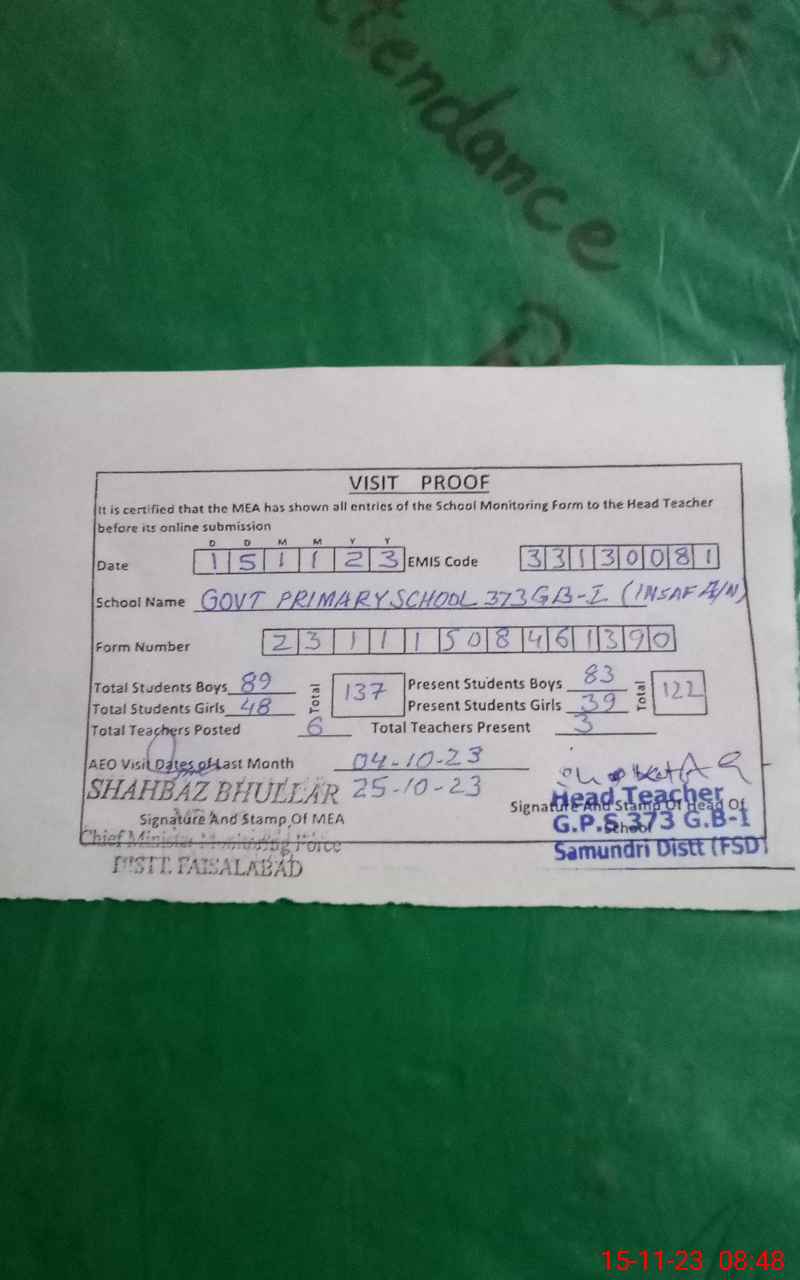 er's
ttendance
R
VISIT PROOF
It is certified that the MEA has shown all entries of the School Monitoring Form to the Head Teacher
before its online submission
D D M M Y Y
Date 1 5 1 1 2 3 EMIS Code 3 3 1 3 0 0 8 1
School Name GOVT PRIMARY SCHOOL 373 GB-I (INSAF A/N)
Form Number 2 3 1 1 1 5 0 8 4 6 1 3 9 0
Total Students Boys 89 Total 137 Present Students Boys 83 Total 122
Total Students Girls 48 Present Students Girls 39
Total Teachers Posted 6 Total Teachers Present 3
AEO Visit Dates of Last Month 04-10-23
SHAHBAZ BHULLAR 25-10-23
Signature And Stamp Of MEA
Signature And Stamp Of Head Of
School
Chief Minister Monitoring Force
DISTT. FAISALABAD
Head Teacher
G.P.S 373 G.B-1
Samundri Distt (FSD)
15-11-23 08:48